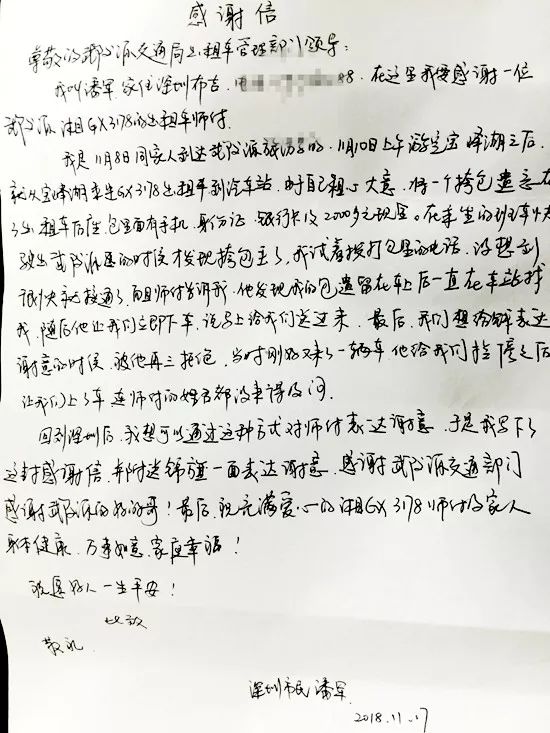 感谢信
尊敬的武陵源交通局出租车管理部门领导:
我叫潘军,家住深圳布吉,电 88,在这里我要感谢一位
武陵源湘GX3178的出租车师付.
我是11月8日同家人到达武陵源旅游的,11月10日上午游完宝峰湖之后,
就从宝峰湖乘坐GX3178出租车到汽车站,由于自己粗心大意,将一个挎包遗忘在
了出租车后座,包里面有手机、身份证、银行卡及2000多元现金。在乘坐的班车快
驶出武陵源区的时候才发现挎包丢了,我试着拨打包里的电话,没想到
很快就接通了,而且师付告诉我,他发现我的包遗留在车上后一直在车站找
我,随后他让我们立即下车,说马上给我们送过来,最后,我们想给钱表达
谢意的时候,被他再三拒绝,当时刚好又来了一辆车,他给我们拦停之后
让我们上了车,连师付的姓名都没来得及问.
回到深圳后,我想可以通过这种方式对师付表达谢意,于是我写下了
这封感谢信,并附送锦旗一面表达谢意,感谢武陵源交通部门
感谢武陵源的好的哥!最后,祝充满爱心的湘GX3178师付及家人
身体健康,万事如意,家庭幸福!
祝愿好人一生平安!
此致
敬礼.
深圳市民 潘军.
2018.11.17